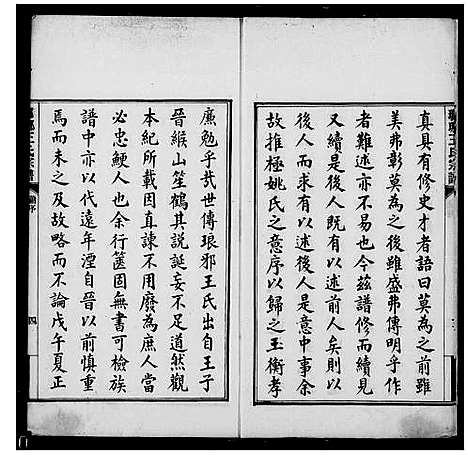 真具有修史才者語曰莫為之前雖
美弗彰莫為之後雖盛弗傳明乎作
者難述亦不易也今茲譜修而續見
又續是後人既有以述前人矣則以
後人而又述後人是意中事余
故推極姚氏之意序以歸之玉衡孝
廉勉乎哉世傳琅邪王氏出自王子
晉緱山笙鶴其說誕妄不足道然觀
本紀所載因直諫不用廢為庶人當
必忠鯁人也余行篋固無書可檢族
譜中亦以代遠年湮自晉以前慎重
焉而未之及故略而不論戊午夏正
王氏宗譜
序
四